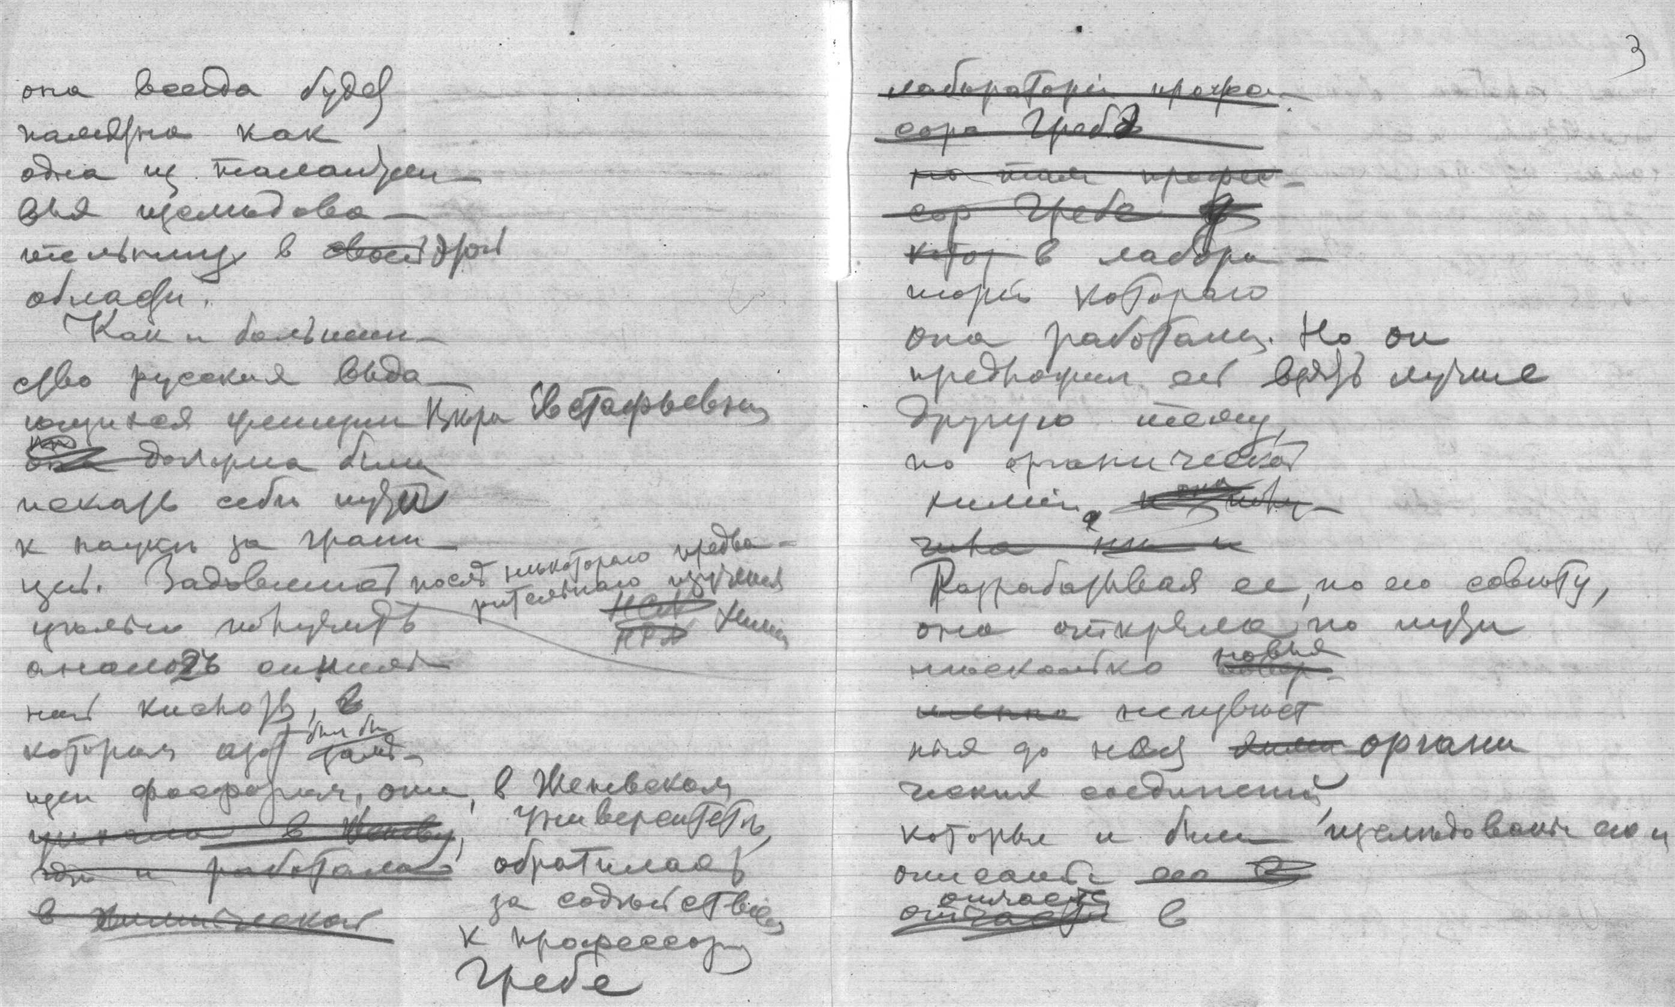 она всегда будет
памятна как
одна из талантли-
выя изследова-
тельниц в своей этой
области.
Как и большин-
ство русския выда-
ющияся женщин Вера Евстафьевна
она должна была
искать себе пути
к науке за грани-
цей. Задавшись после некотораго предва-
рительнаго изучения
химии
целью получить
аналог синиль-
ной кислоты, в
котором азот был бы
заме-
щен фосфором, она, в Женевском
уехала в Женеву, Университете,
где и работала обратилась
за содействием
в химической
к профессору
Гребе
3
лаборатории профес-
сора Гребе
но там профес-
сор Гребе
котор в лабора-
тории котораго
она работала. Но он
предложил ей взять лучше
другую тему,
по органической
химии, она
Разрабатывая ее, по его совету,
она открыла по пути
несколько новыя
неизвест
ныя до нея органи
ческия соединения,
которыя и были изследованы ею и
описаны ею
отчасти
отчасти в